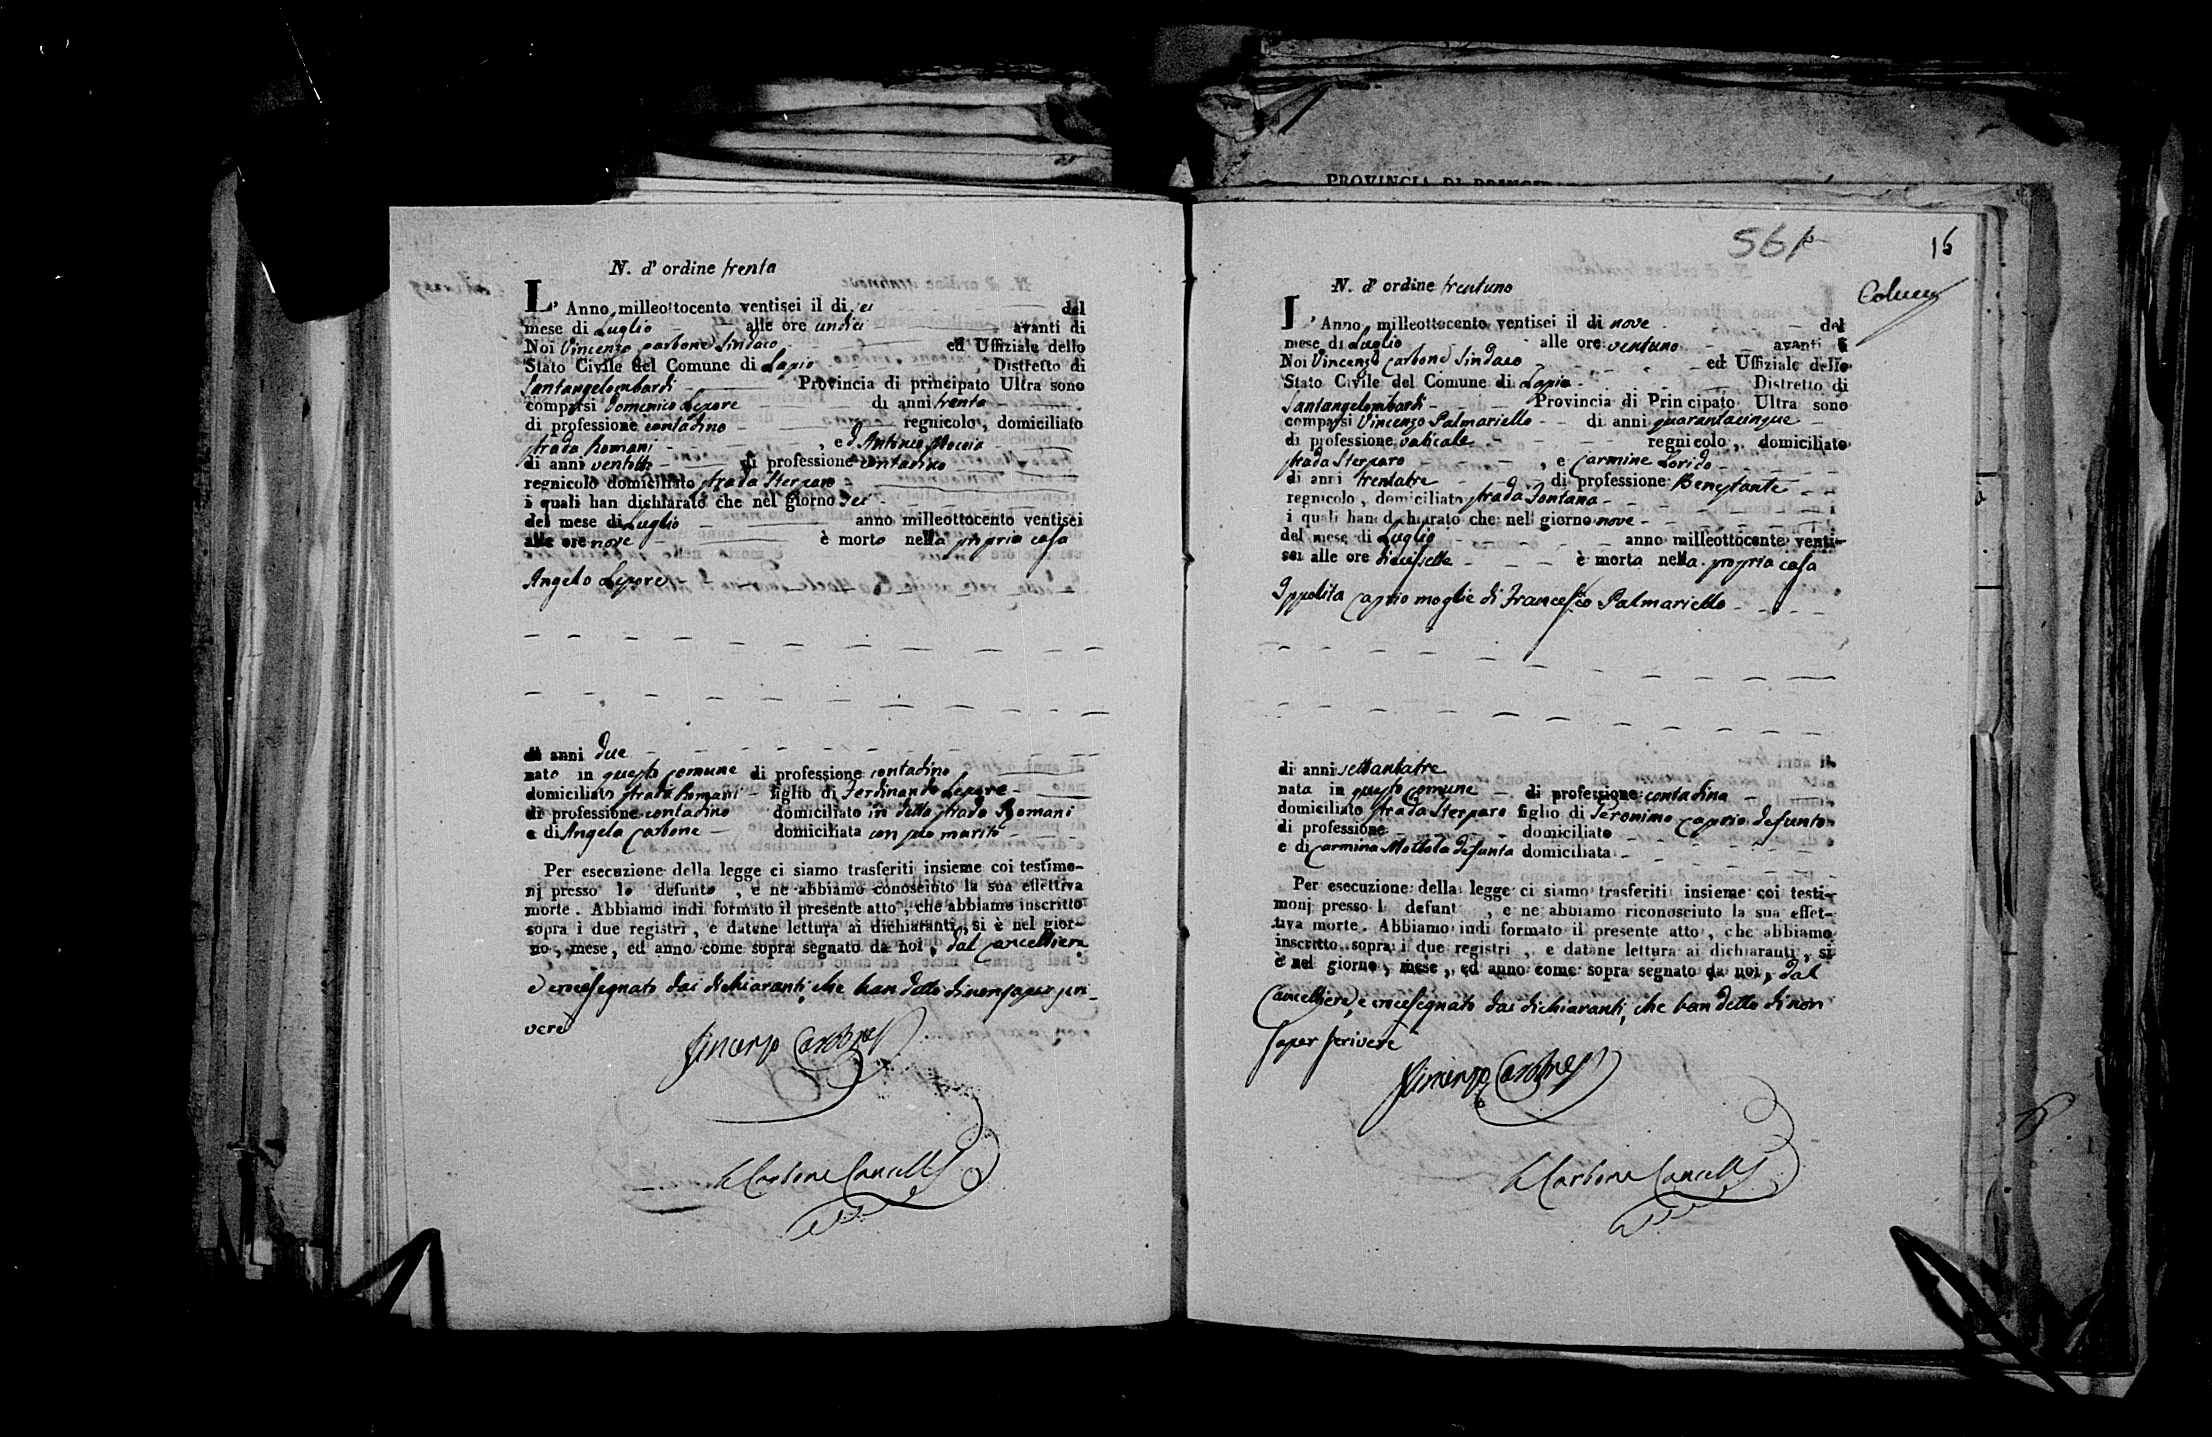 PROVINCIA DI PRINCIPA
N. d' ordine trenta
L' Anno milleottocento ventisei il di sei del
mese di Luglio alle ore undici avanti di
Noi Vincenzo Carbone Sindaco ed Uffiziale dello
Stato Civile del Comune di Lapio Distretto di
Santangelombardi Provincia di principato Ultra sono
comparsi Domenico Lepore di anni trenta
di professione contadino regnicolo, domiciliato
strada Romani, ed Antonio Moccia
di anni ventotto di professione contadino
regnicolo domiciliato strada Sterparo
i quali han dichiarato che nel giorno sei
del mese di Luglio anno milleottocento ventisei
alle ore nove è morto nella propria casa
Angelo Lepore
di anni due
nato in questo comune di professione contadino
domiciliato strada Romani figlio di Ferdinando Lepore
di professione contadino domiciliato in detta strada Romani
e di Angela Carbone domiciliata con suo marito
Per esecuzione della legge ci siamo trasferiti insieme coi testimo-
nj presso lo defunto, e ne abbiamo conosciuto la sua effettiva
morte. Abbiamo indi formato il presente atto, che abbiamo inscritto
sopra i due registri, e datone lettura ai dichiaranti, si è nel gior-
no, mese, ed anno come sopra segnato da noi, dal Cancelliere
e crocesegnato dai dichiaranti che han detto di non saper scri-
vere
Vincenzo Carbone
Carbone Cancell
561
15
N. d' ordine trentuno
L' Anno milleottocento ventisei il di nove del
mese di Luglio alle ore ventuno avanti
Noi Vincenzo Carbone Sindaco ed Uffiziale dello
Stato Civile del Comune di Lapio Distretto di
Santangelombardi Provincia di Principato Ultra sono
comparsi Vincenzo Palmariello di anni quarantacinque
di professione vaticale regnicolo, domiciliato
strada Sterparo, e Carmine Lorido
di anni trentatre di professione Benestante
regnicolo, domiciliato strada Fontana
i quali han dichiarato che nel giorno nove
del mese di Luglio anno milleottocento venti-
sei alle ore diciassette è morta nella propria casa
Ippolita Caprio moglie di Francesco Palmariello
di anni settantatre
nata in questo Comune di professione contadina
domiciliato strada Sterparo figlio di Geronimo Caprio defunto
di professione domiciliato
e di Carmina Mottola defunta domiciliata
Per esecuzione della legge ci siamo trasferiti insieme coi testi-
monj presso l defunt, e ne abbiamo riconosciuto la sua effet-
tiva morte. Abbiamo indi formato il presente atto, che abbiamo
inscritto sopra i due registri, e datane lettura ai dichiaranti, si
è nel giorno, mese, ed anno come sopra segnato da noi, dal
Cancelliere, e crocesegnato dai dichiaranti, che han detto di non
saper scrivere
Vincenzo Carbone
Carbone Cancell